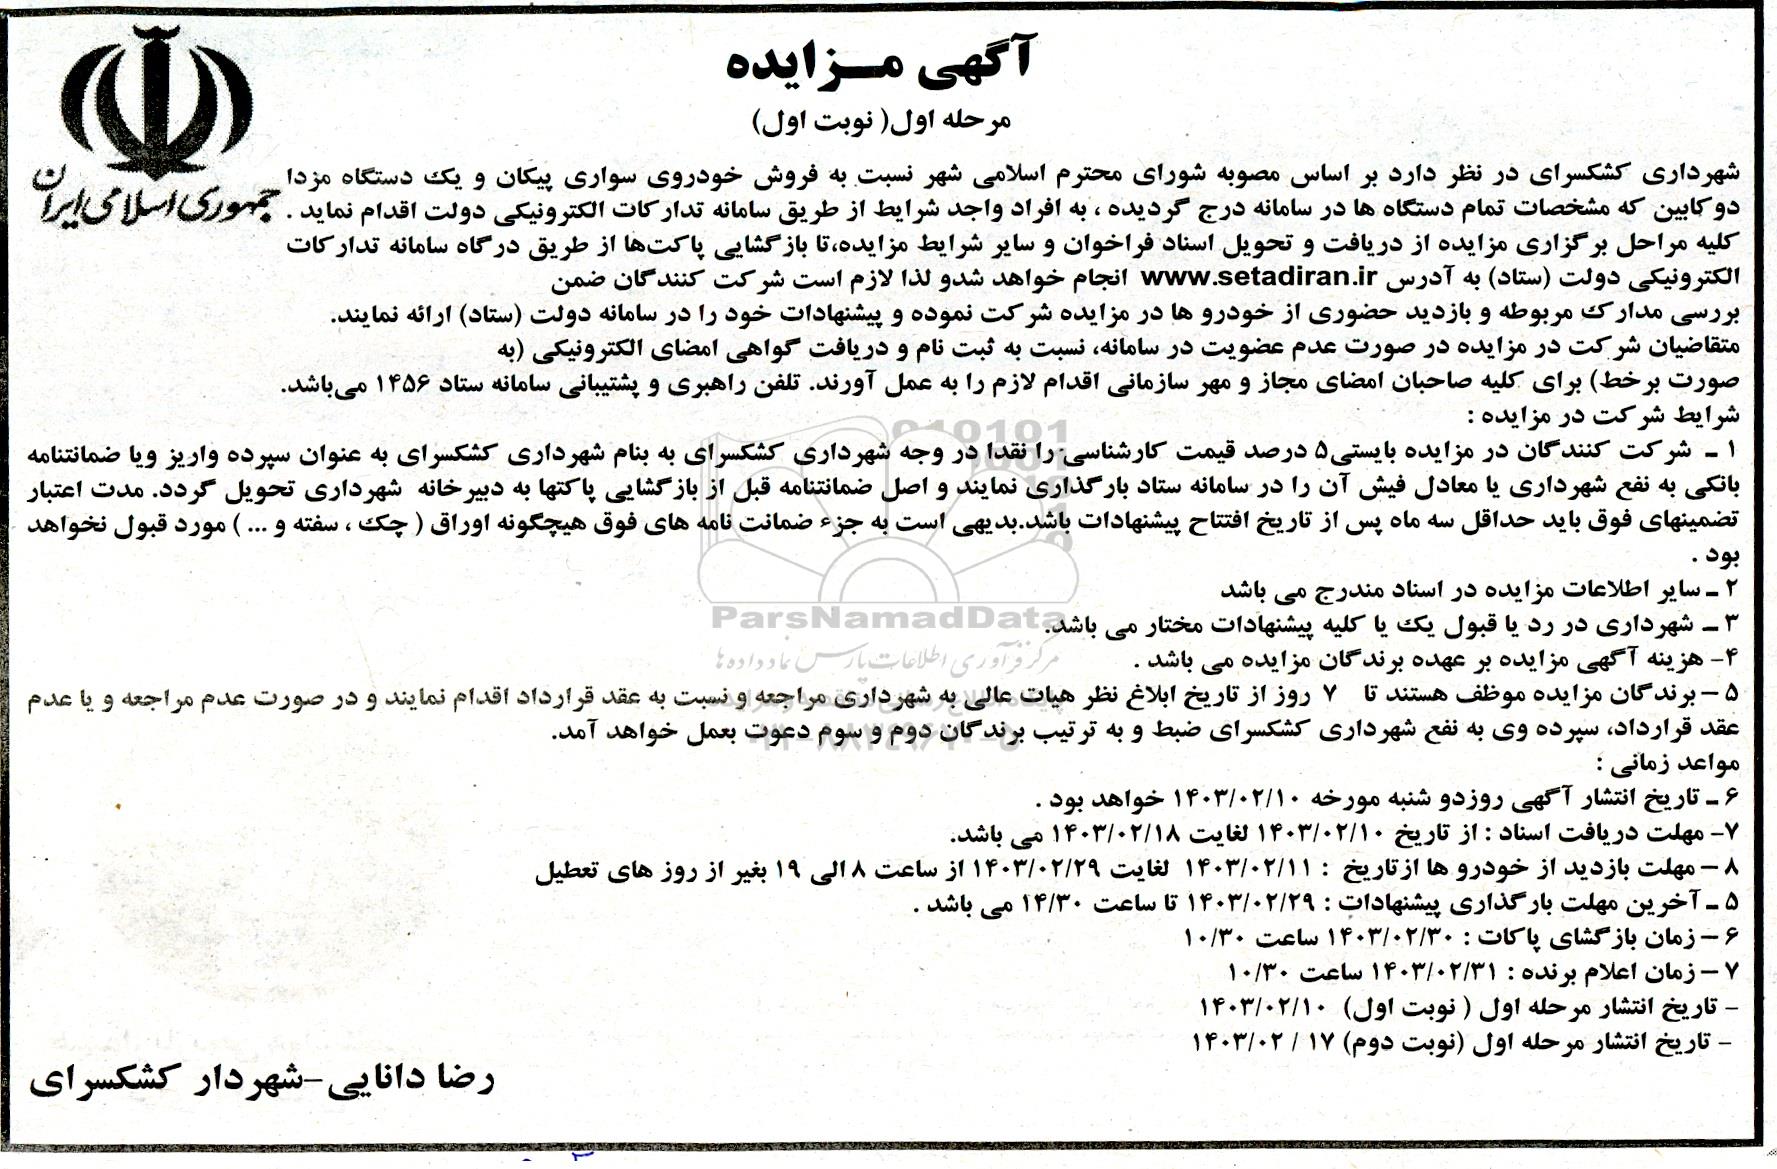 آگهی مـــزایده
مرحله اول( نوبت اول)
جمهوری اسلامی ایران
شهرداری کشکسرای در نظر دارد بر اساس مصوبه شورای محترم اسلامی شهر نسبت به فروش خودروی سواری پیکان و یک دستگاه مزدا
دوکابین که مشخصات تمام دستگاه ها در سامانه درج گردیده ، به افراد واجد شرایط از طریق سامانه تدارکات الکترونیکی دولت اقدام نماید .
کلیه مراحل برگزاری مزایده از دریافت و تحویل اسناد فراخوان و سایر شرایط مزایده،تا بازگشایی پاکت‌ها از طریق درگاه سامانه تدارکات
الکترونیکی دولت (ستاد) به آدرس www.setadiran.ir انجام خواهد شدو لذا لازم است شرکت کنندگان ضمن
بررسی مدارک مربوطه و بازدید حضوری از خودرو ها در مزایده شرکت نموده و پیشنهادات خود را در سامانه دولت (ستاد) ارائه نمایند.
متقاضیان شرکت در مزایده در صورت عدم عضویت در سامانه، نسبت به ثبت نام و دریافت گواهی امضای الکترونیکی (به
صورت برخط) برای کلیه صاحبان امضای مجاز و مهر سازمانی اقدام لازم را به عمل آورند. تلفن راهبری و پشتیبانی سامانه ستاد ۱۴۵۶ می‌باشد.
شرایط شرکت در مزایده :
۱ ـ شرکت کنندگان در مزایده بایستی۵ درصد قیمت کارشناسی را نقدا در وجه شهرداری کشکسرای به بنام شهرداری کشکسرای به عنوان سپرده واریز ویا ضمانتنامه
بانکی به نفع شهرداری یا معادل فیش آن را در سامانه ستاد بارگذاری نمایند و اصل ضمانتنامه قبل از بازگشایی پاکتها به دبیرخانه شهرداری تحویل گردد. مدت اعتبار
تضمینهای فوق باید حداقل سه ماه پس از تاریخ افتتاح پیشنهادات باشد.بدیهی است به جزء ضمانت نامه های فوق هیچگونه اوراق ( چک ، سفته و ... ) مورد قبول نخواهد
بود .
۲ ـ سایر اطلاعات مزایده در اسناد مندرج می باشد
۳ ـ شهرداری در رد یا قبول یک یا کلیه پیشنهادات مختار می باشد.
۴- هزینه آگهی مزایده بر عهده برندگان مزایده می باشد .
۵ – برندگان مزایده موظف هستند تا ۷ روز از تاریخ ابلاغ نظر هیات عالی به شهرداری مراجعه و نسبت به عقد قرارداد اقدام نمایند و در صورت عدم مراجعه و یا عدم
عقد قرارداد، سپرده وی به نفع شهرداری کشکسرای ضبط و به ترتیب برندگان دوم و سوم دعوت بعمل خواهد آمد.
مواعد زمانی :
۶ ـ تاریخ انتشار آگهی روزدو شنبه مورخه ۱۴۰۳/۰۲/۱۰ خواهد بود .
۷- مهلت دریافت اسناد : از تاریخ ۱۴۰۳/۰۲/۱۰ لغایت ۱۴۰۳/۰۲/۱۸ می باشد.
۸ – مهلت بازدید از خودرو ها ازتاریخ : ۱۴۰۳/۰۲/۱۱ لغایت ۱۴۰۳/۰۲/۲۹ از ساعت ۸ الی ۱۹ بغیر از روز های تعطیل
۵ ـ آخرین مهلت بارگذاری پیشنهادات : ۱۴۰۳/۰۲/۲۹ تا ساعت ۱۴/۳۰ می باشد .
۶ – زمان بازگشای پاکات : ۱۴۰۳/۰۲/۳۰ ساعت ۱۰/۳۰
۷ – زمان اعلام برنده : ۱۴۰۳/۰۲/۳۱ ساعت ۱۰/۳۰
- تاریخ انتشار مرحله اول ( نوبت اول) ۱۴۰۳/۰۲/۱۰
- تاریخ انتشار مرحله اول (نوبت دوم) ۱۷ / ۱۴۰۳/۰۲
رضا دانایی-شهردار کشکسرای
ParsNamadData
مرکز فرآوری اطلاعات پارس نماد داده ها